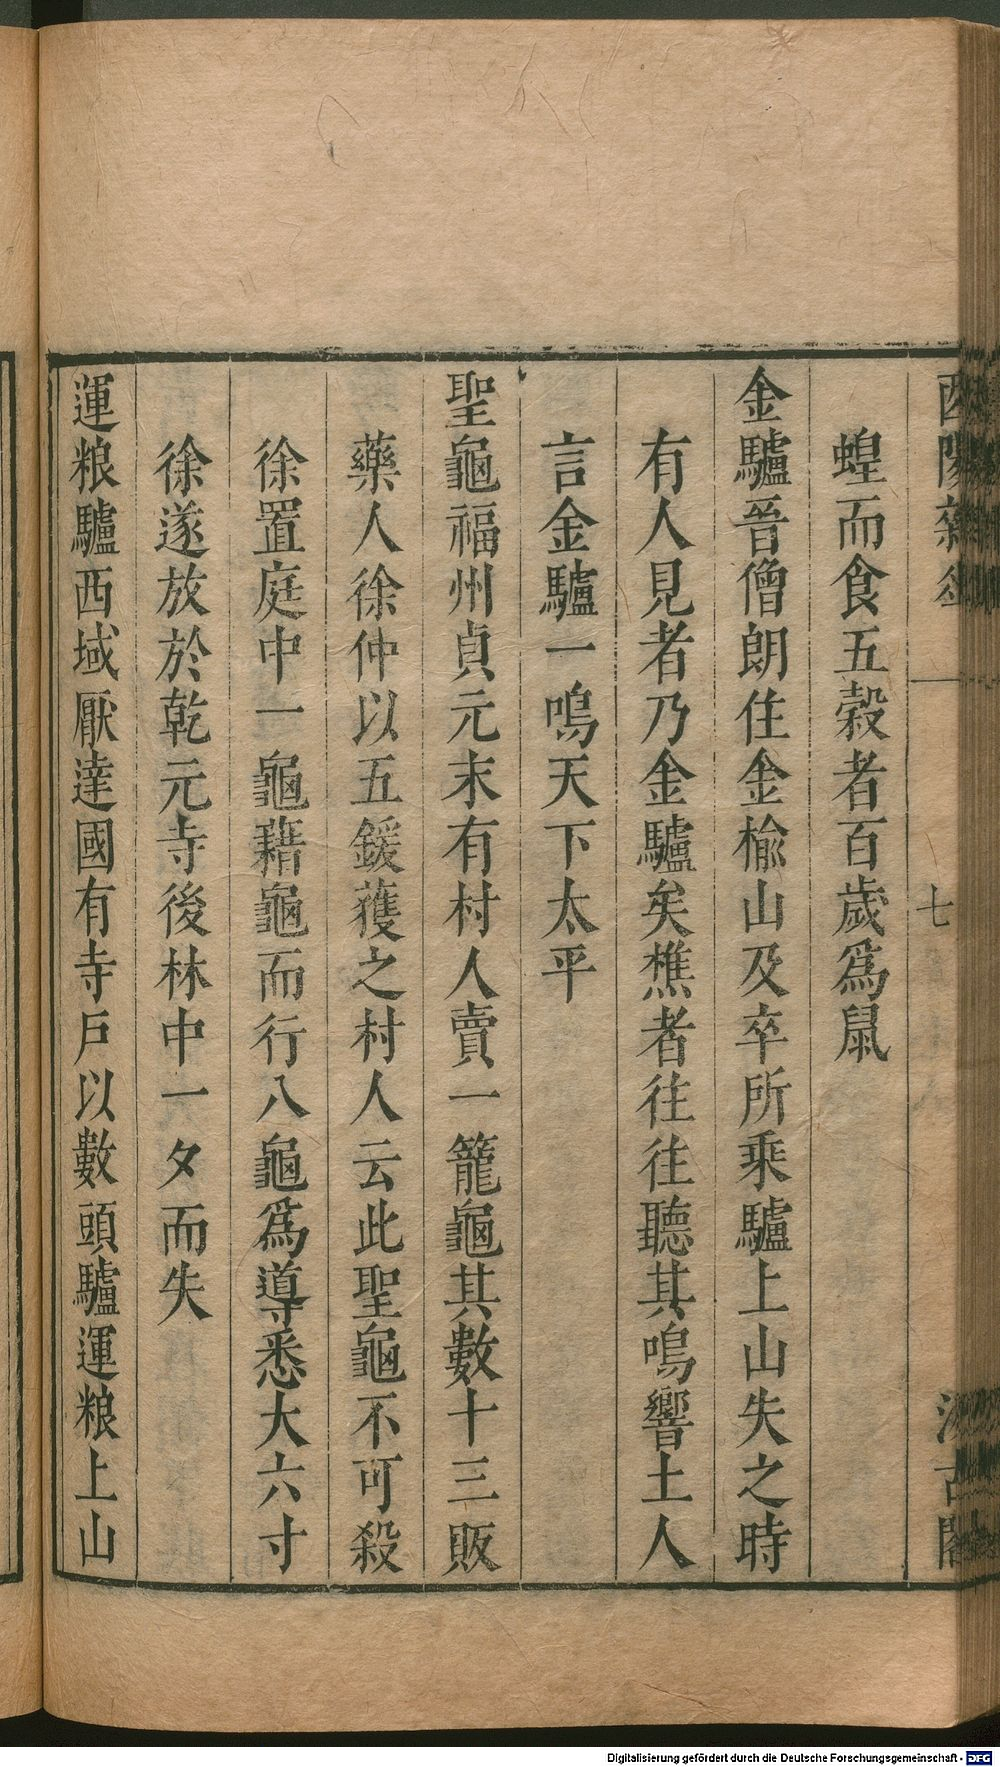 酉陽雜俎
七
汲古閣
蝗而食五穀者百歲爲鼠
金驢晉僧朗住金榆山及卒所乘驢上山失之時
有人見者乃金驢矣樵者往往聽其鳴響土人
言金驢一鳴天下太平
聖龜福州貞元末有村人賣一籠龜其數十三販
藥人徐仲以五鍰獲之村人云此聖龜不可殺
徐置庭中一龜藉龜而行八龜爲導悉大六寸
徐遂放於乾元寺後林中一夕而失
運粮驢西域厭達國有寺戶以數頭驢運粮上山
Digitalisierung gefördert durch die Deutsche Forschungsgemeinschaft - DFG